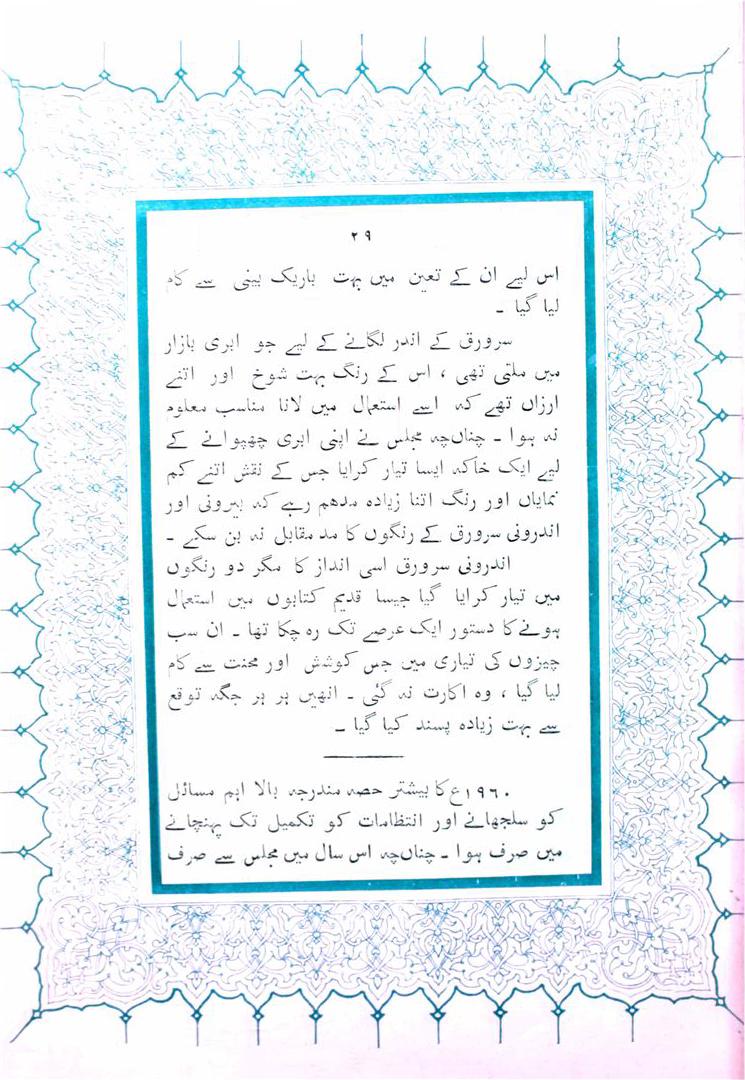 ۲۹
اس لیے ان کے تعین میں بہت باریک بینی سے کام
لیا گیا ۔
سرورق کے اندر لگانے کے لیے جو ابری بازار
میں ملتی تھی ، اس کے رنگ بہت شوخ اور اتنے
ارزاں تھے کہ اسے استعمال میں لانا مناسب معلوم
نہ ہوا ۔ چناں‌چہ مجلس نے اپنی ابری چھپوانے کے
لیے ایک خاکہ ایسا تیار کرایا جس کے نقش اتنے کم
نمایاں اور رنگ اتنا زیادہ مدھم رہے کہ بیرونی اور
اندرونی سرورق کے رنگوں کا مد مقابل نہ بن سکے ۔
اندرونی سرورق اسی انداز کا مگر دو رنگوں
میں تیار کرایا گیا جیسا قدیم کتابوں میں استعمال
ہونے کا دستور ایک عرصے تک رہ چکا تھا ۔ ان سب
چیزوں کی تیاری میں جس کوشش اور محنت سے کام
لیا گیا ، وہ اکارت نہ گئی ۔ انھیں ہر ہر جگہ توقع
سے بہت زیادہ پسند کیا گیا ۔
۱۹۶۰ع کا بیشتر حصہ مندرجہ بالا اہم مسائل
کو سلجھانے اور انتظامات کو تکمیل تک پہنچانے
میں صرف ہوا ۔ چناں‌چہ اس سال میں مجلس سے صرف